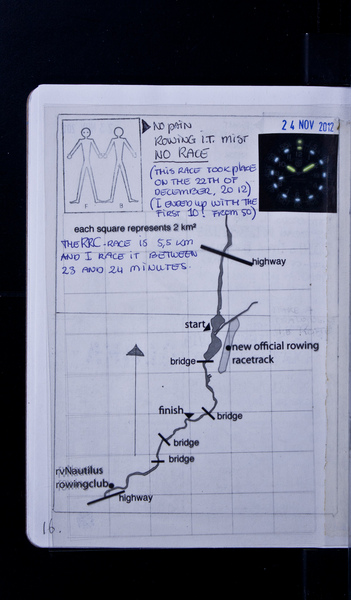 NO PAIN
ROWING I.T. MIST
NO RACE
(THIS RACE TOOK PLACE
ON THE 22TH OF
DECEMBER, 2012)
(I ENDED UP WITH THE
FIRST 10! FROM 50)
24 NOV 2012
F B
each square represents 2 km²
THE RRC-RACE IS 5,5 KM
AND I RACE IT BETWEEN
23 AND 24 MINUTES.
highway
start
new official rowing
racetrack
bridge
finish
bridge
bridge
bridge
rvNautilus
rowingclub
highway
16.